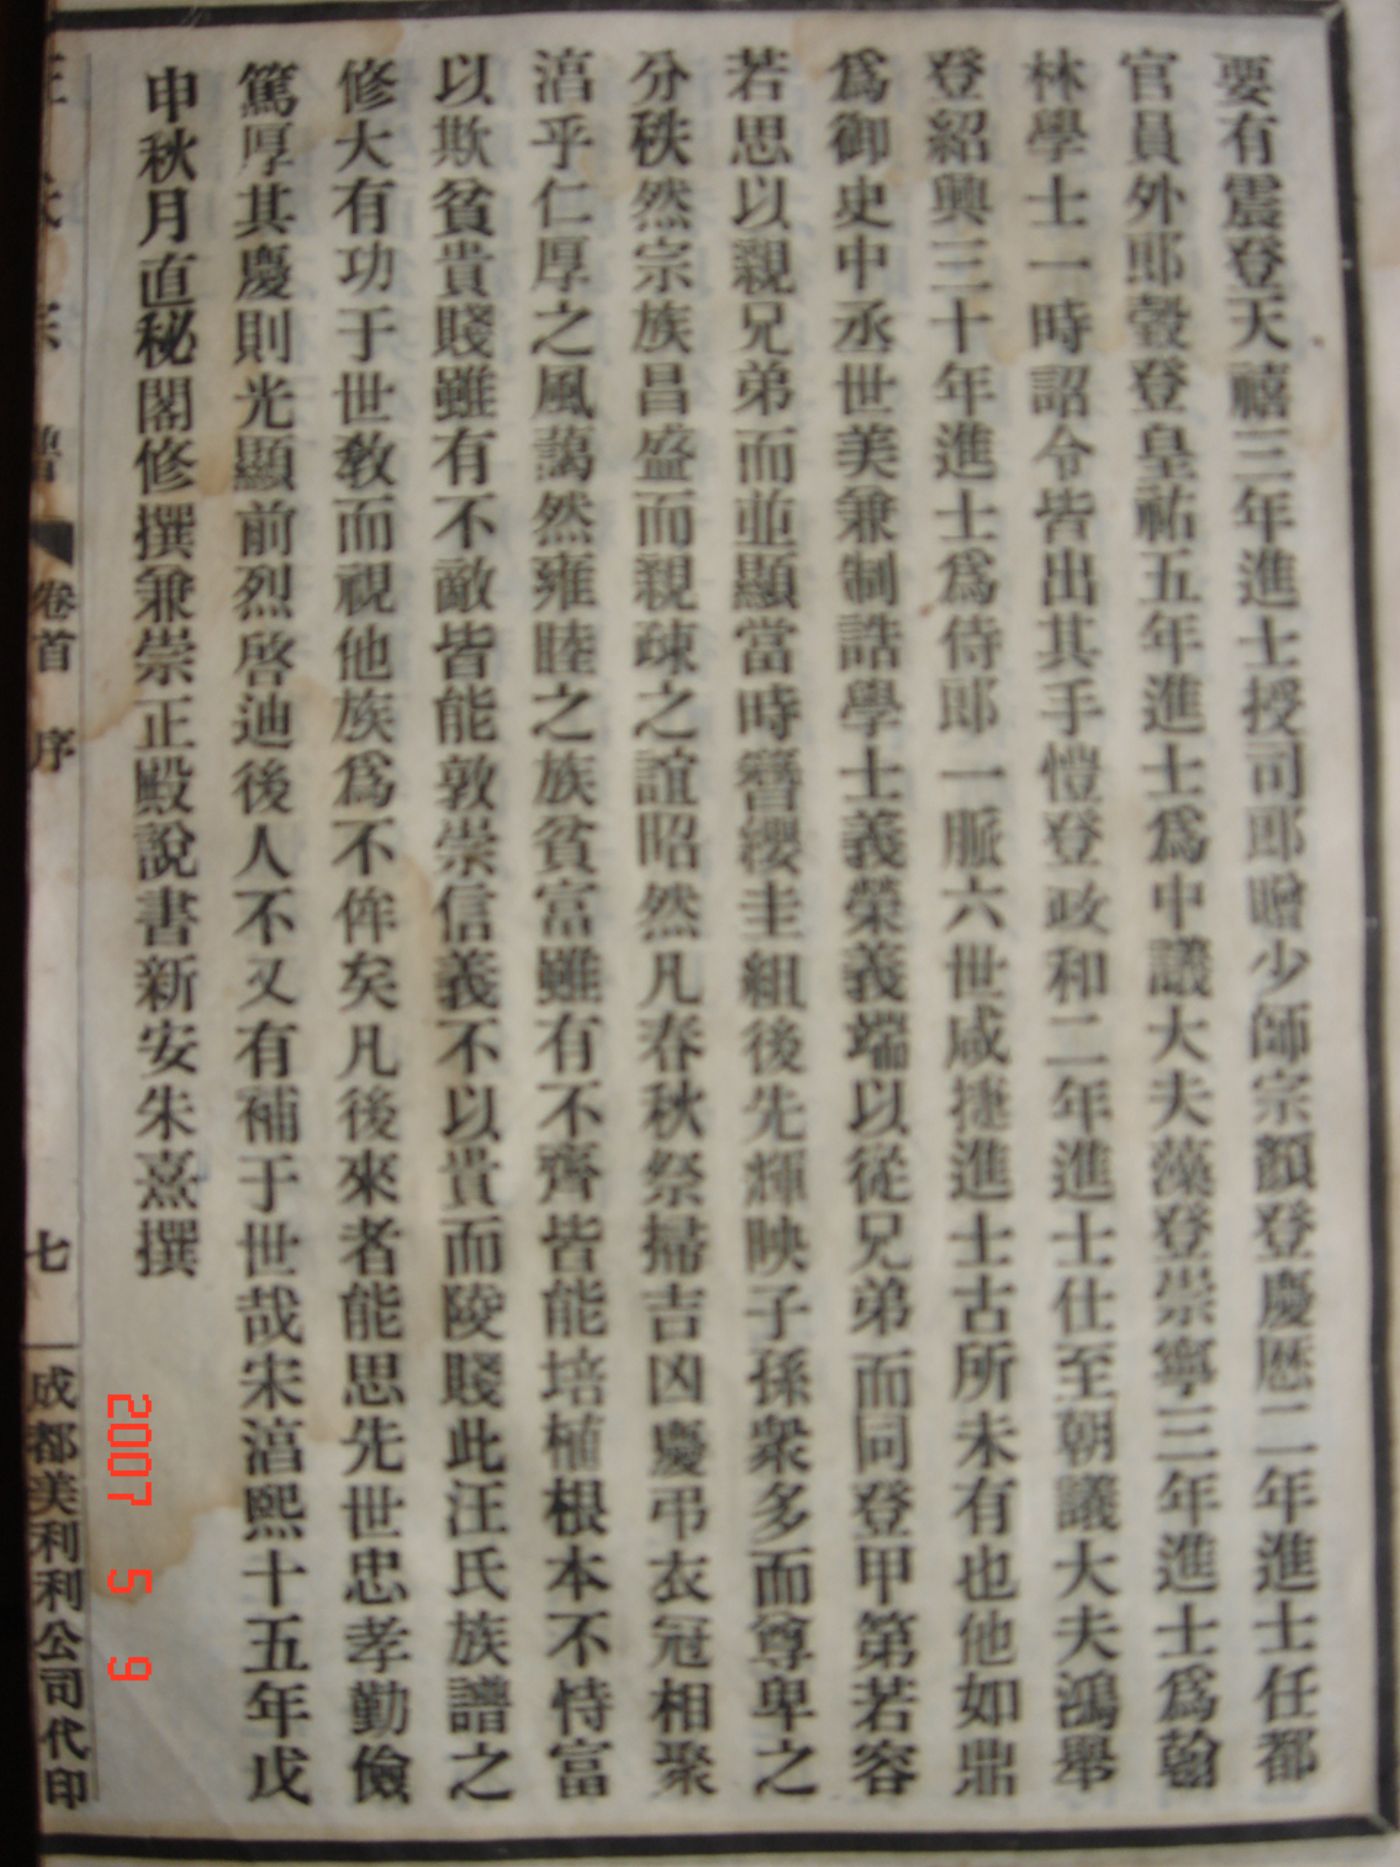 要有震登天禧三年進士授司郎贈少師宗顏登慶厯二年進士任都
官員外郎瑴登皇祐五年進士為中議大夫藻登崇寧三年進士為翰
林學士一時詔令皆出其手愷登政和二年進士仕至朝議大夫鴻舉
登紹興三十年進士為侍郎一脈六世咸捷進士古所未有也他如鼎
為御史中丞世美兼制誥學士義榮義端以從兄弟而同登甲第若容
若思以親兄弟而並顯當時簪纓圭組後先輝映子孫衆多而尊卑之
分秩然宗族昌盛而親疎之誼昭然凡春秋祭掃吉凶慶弔衣冠相聚
湻乎仁厚之風藹然雍睦之族貧富雖有不齊皆能培植根本不恃富
以欺貧貴賤雖有不敵皆能敦崇信義不以貴而陵賤此汪氏族譜之
修大有功于世教而視他族為不侔矣凡後來者能思先世忠孝勤儉
篤厚其慶則光顯前烈啓迪後人不又有補于世哉宋湻熙十五年戊
申秋月直秘閣修撰兼崇正殿說書新安朱熹撰
卷首 序 七 成都美利利公司代印
2007 5 9